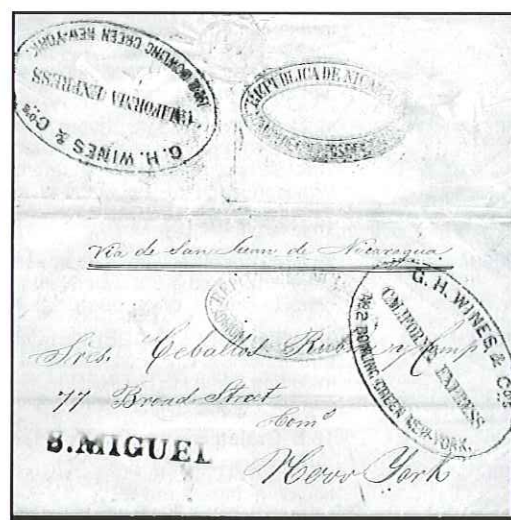 G. H. WINES & Co's
CALIFORNIA EXPRESS
No 2 BOWLING GREEN NEW-YORK.
REPUBLICA DE NICARA
Via de San Juan de Nicaragua
G. H. WINES & Co's
CALIFORNIA EXPRESS
No 2 BOWLING GREEN NEW-YORK.
Sres. Ceballos
77 Broad Street
S.MIGUEL
New York